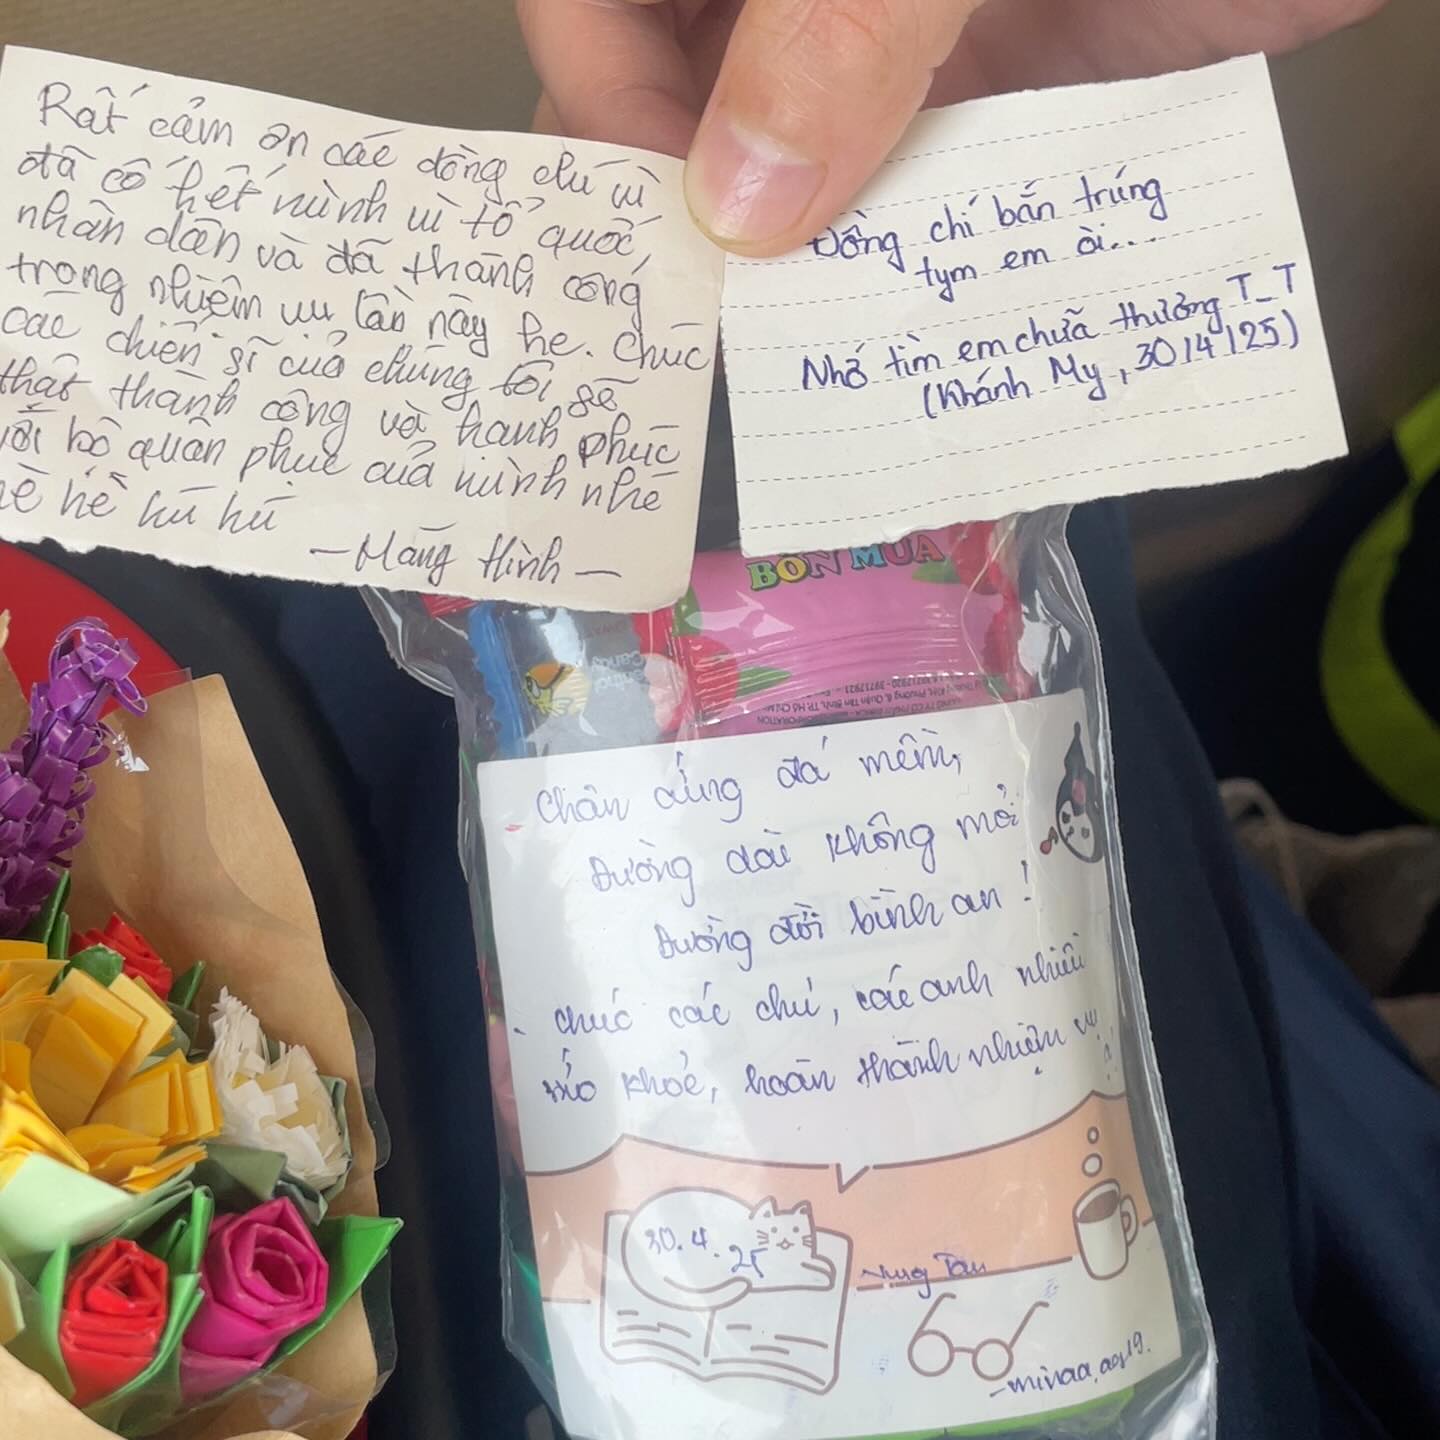 Rất cảm ơn các đồng chí vì
đã cố hết mình vì tổ quốc,
nhân dân và đã thành công
trong nhiệm vụ lần này hẹ. Chúc
các chiến sĩ của chúng tôi sẽ
thật thành công và hạnh phúc
với bộ quân phục của mình nhé
hè hè hú hú
—Hằng Hình—
Đồng chí bắn trúng
tym em òi...
Nhớ tìm em chữa thưởng T_T
(Khánh My, 30/4/25)
BỐN MÙA
- Chân cứng đá mềm,
Đường dài không mỏi
Đường đời bình an!
- chúc các chú, các anh nhiều
sức khỏe, hoàn thành nhiệm vụ
30.4.25
Vũng Tàu
-minaa, a919.